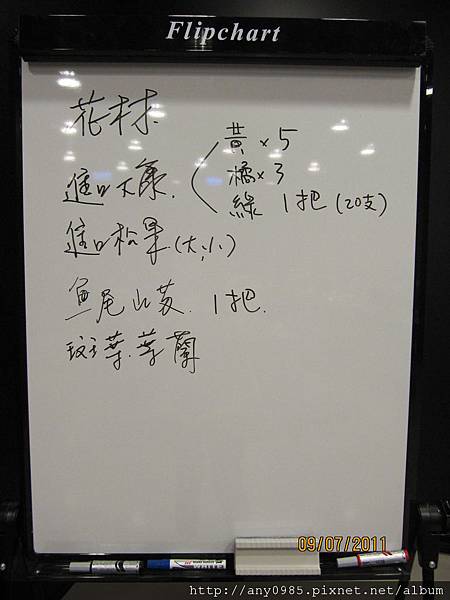 Flipchart
花材
進口大康.
黃 x 5
橘 x 3
綠 1把 (20支)
進口松果 (大,小)
魚尾山蘇. 1把.
斑葉.葉蘭
09/07/2011
http://any0985.pixnet.net/album